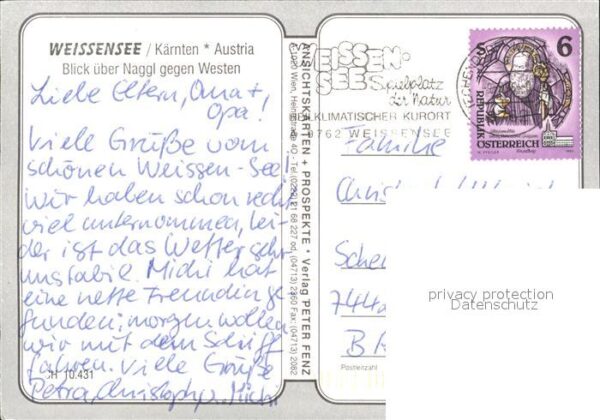 WEISSENSEE / Kärnten * Austria
Blick über Naggl gegen Westen
Liebe Eltern, Oma +
Opa!
Viele Grüße vom
schönen Weissen-See!
Wir haben schon recht
viel unternommen, lei-
der ist das Wetter sehr
unstabil. Michi hat
eine nette Freundin ge-
funden; morgen wollen
wir mit dem Schiff
fahren. Viele Grüße
Petra, Christoph, Michi
JH 10.431
ANSICHTSKARTEN + PROSPEKTE * Verlag PETER FENZ
WEISSEN-
SEE Spielplatz
der Natur
HEILKLIMATISCHER KURORT
9762 WEISSENSEE
S 6
REPUBLIK
ÖSTERREICH
Familie
744
Postleitzahl
privacy protection
Datenschutz